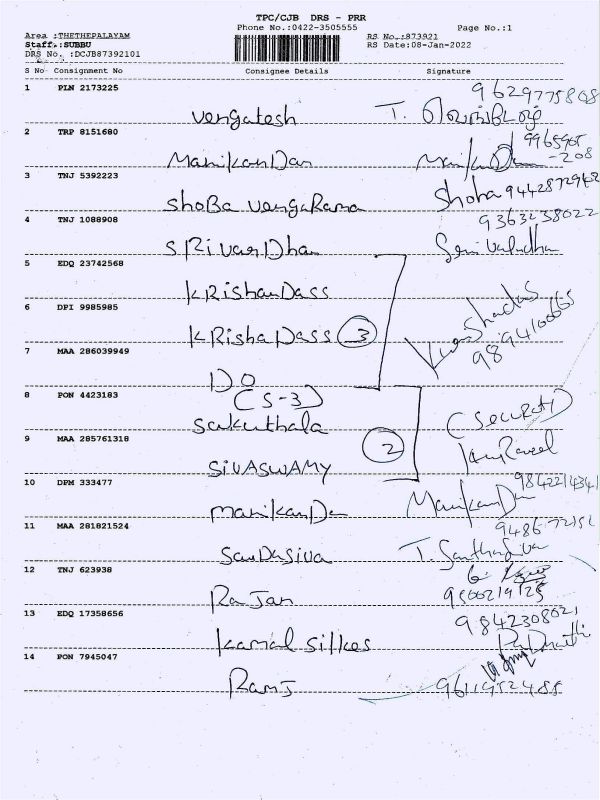 TPC/CJB DRS - PRR
Phone No.:0422-3505555 Page No.:1
Area :THETHEPALAYAM RS No.:873921
Staff.:SUBBU RS Date:08-Jan-2022
DRS No. :DCJB87392101
S No Consignment No Consignee Details Signature
1 PLN 2173225 9629775808
Vengatesh T.
2 TRP 8151680 9965905
Manikandan -208
3 TNJ 5392223
ShoBa VengaRama Shoba 9442872962
4 TNJ 1088908 9363238022
SRivarDhan
5 EDQ 23742568
KRishanDass
6 DPI 9985985
KRishaDass 3
7 MAA 286039949
DO
(S-3)
8 PON 4423183 (Security)
Sakuthala
9 MAA 285761318 2
SIVASWAMY
10 DPM 333477 9842214341
ManikanDa
11 MAA 281821524
SanDasiva T.
12 TNJ 623938
Rajan 9500219125
13 EDQ 17358656 9842308021
Kamal Silkes
14 PON 7945047
Ramj 9611952485